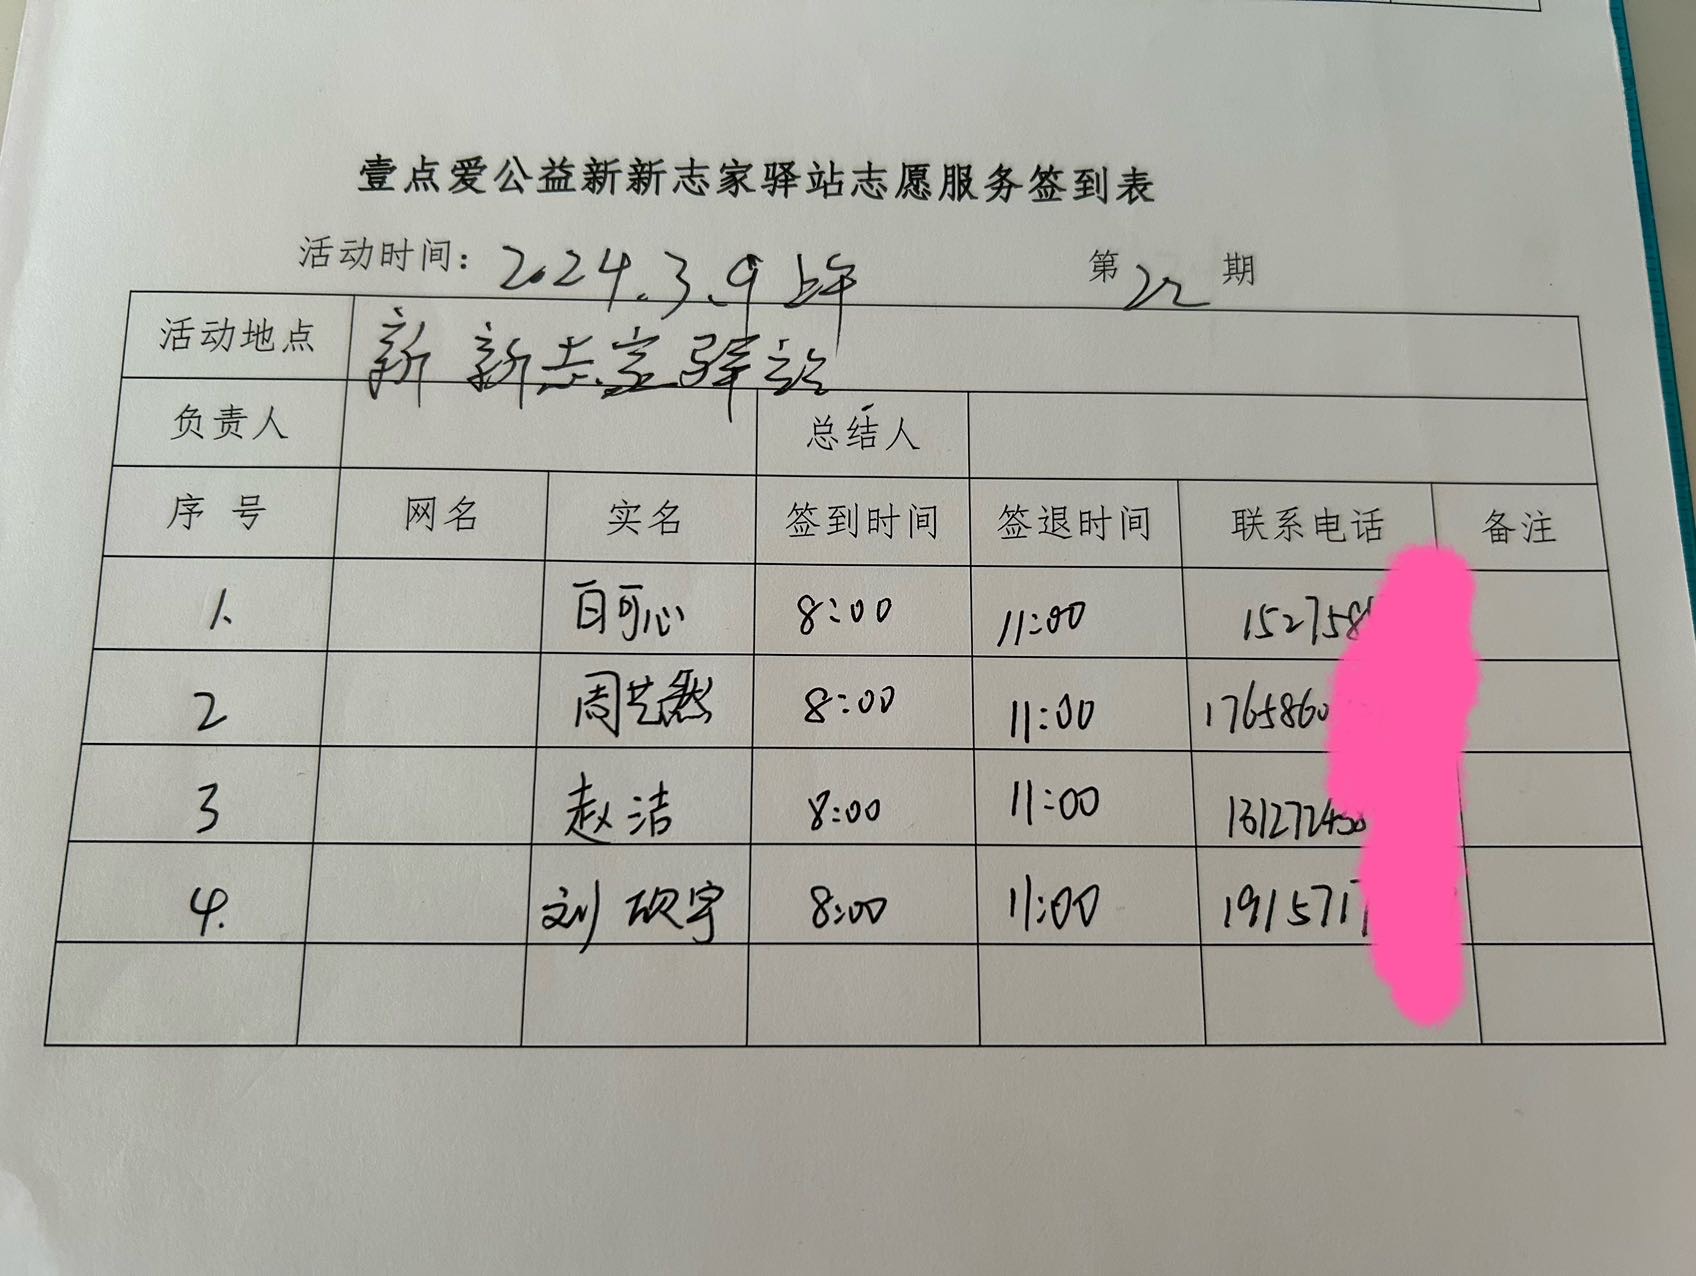 壹点爱公益新新志家驿站志愿服务签到表
活动时间：2024.3.9 上午 第22期
活动地点 新新志家驿站
负责人 总结人
序号 网名 实名 签到时间 签退时间 联系电话 备注
1. 白可心 8:00 11:00 152758
2 周艺然 8:00 11:00 1765860
3 赵洁 8:00 11:00
4. 刘 8:00 11:00 1915717